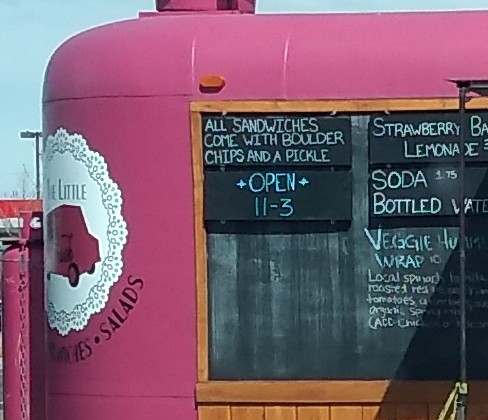 THE LITTLE
SANDWICHES • SALADS
ALL SANDWICHES
COME WITH BOULDER
CHIPS AND A PICKLE
+OPEN+
11-3
STRAWBERRY
LEMONADE
SODA 1.75
BOTTLED WATE
VEGGIE
WRAP
Local
roasted red
tomatoes,
organic